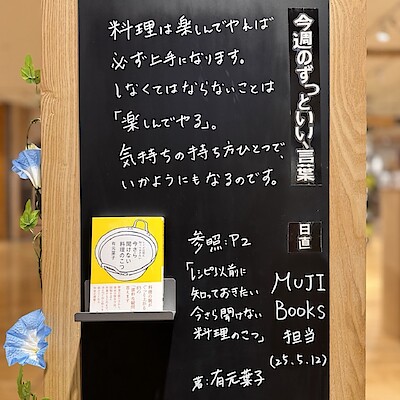 今週のずっといい言葉
料理は楽しんでやれば
必ず上手になります。
しなくてはならないことは
「楽しんでやる」。
気持ちの持ち方ひとつで、
いかようにもなるのです。
日直
MUJI
Books
担当
(25.5.12)
参照:P2
「レシピ以前に
知っておきたい
今さら聞けない
料理のこつ」
著:有元葉子
今さら
聞けない
料理のこつ
有元葉子